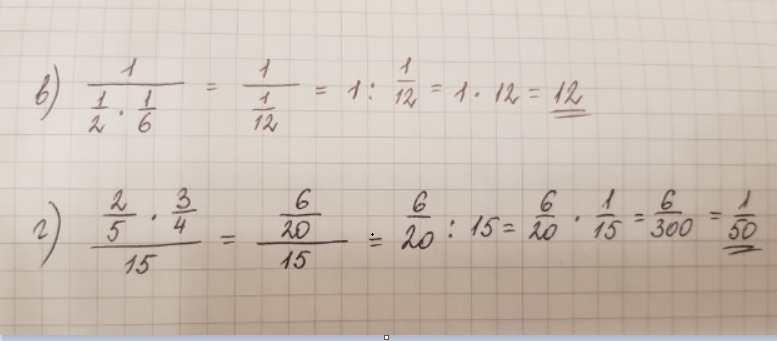 в) 1/(1/2 · 1/6) = 1/(1/12) = 1 : 1/12 = 1 · 12 = 12
г) (2/5 · 3/4)/15 = (6/20)/15 = 6/20 : 15 = 6/20 · 1/15 = 6/300 = 1/50